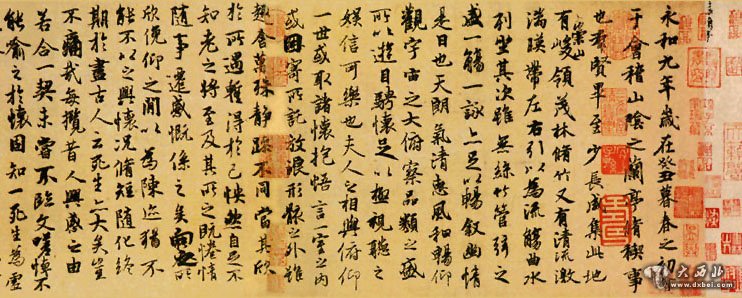 永和九年歲在癸丑暮春之初
于會稽山陰之蘭亭脩稧事
也羣賢畢至少長咸集此地
有崇山峻領茂林脩竹又有清流激
湍暎帶左右引以為流觴曲水
列坐其次雖無絲竹管弦之
盛一觴一詠亦足以暢敘幽情
是日也天朗氣清惠風和暢仰
觀宇宙之大俯察品類之盛
所以遊目騁懷足以極視聽之
娛信可樂也夫人之相與俯仰
一世或取諸懷抱悟言一室之內
或因寄所託放浪形骸之外雖
趣舍萬殊靜躁不同當其欣
於所遇蹔得於己怏然自足不
知老之將至及其所之既惓情
隨事遷感慨係之矣向之所
欣俛仰之閒以為陳迹猶不
能不以之興懷況脩短隨化終
期於盡古人云死生亦大矣豈
不痛哉每攬昔人興感之由
若合一契未嘗不臨文嗟悼不
能喻之於懷固知一死生為虛
大西北网
www.dxbei.com